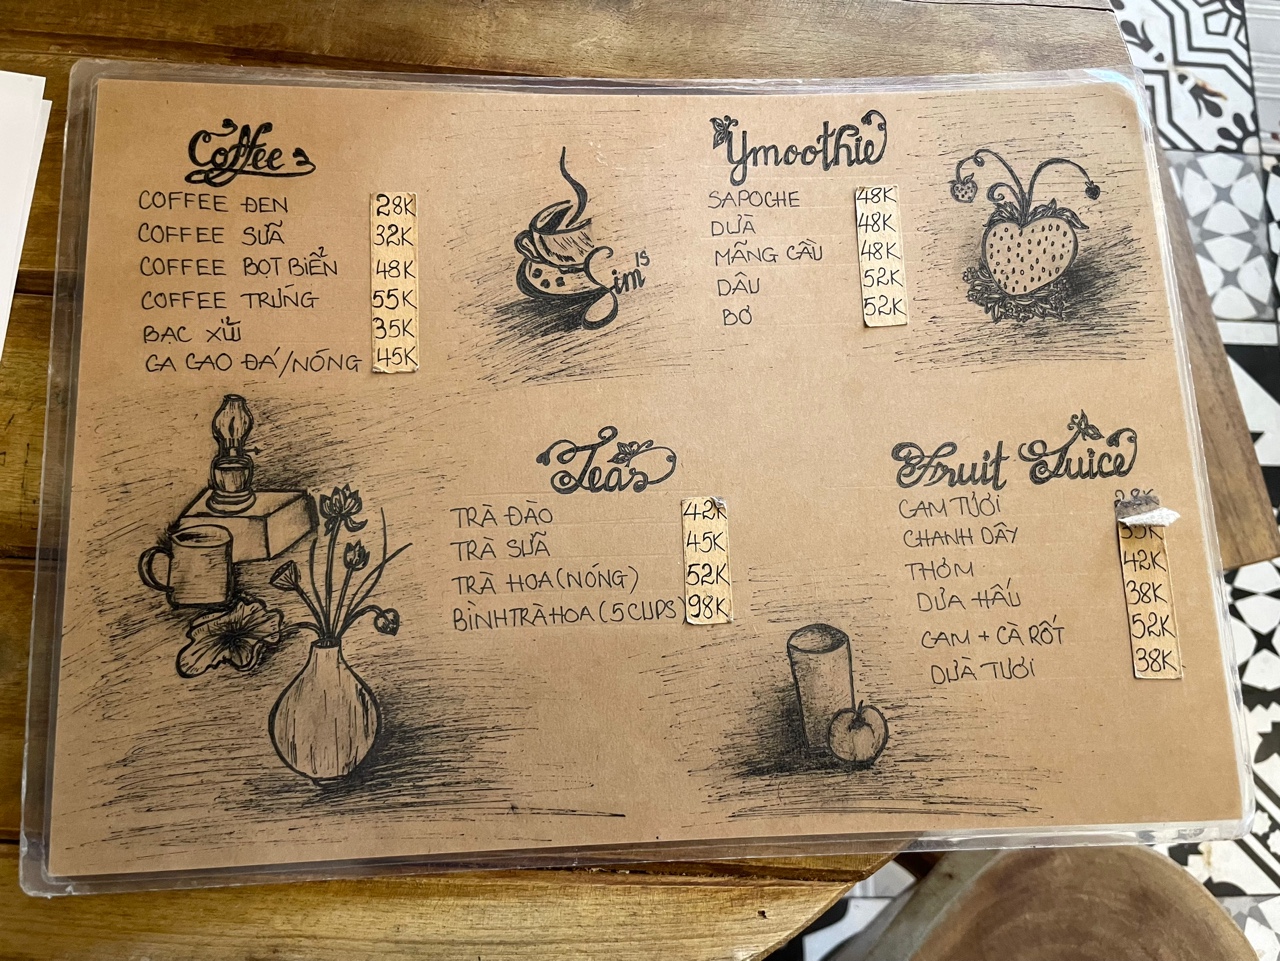 Coffee
COFFEE ĐEN 28K
COFFEE SỮA 32K
COFFEE BỌT BIỂN 48K
COFFEE TRỨNG 55K
BẠC XỈU 35K
CA CAO ĐÁ/NÓNG 45K
Sim's
Ymoothie
SAPOCHE 48K
DỪA 48K
MÃNG CẦU 48K
DÂU 52K
BƠ 52K
Teas
TRÀ ĐÀO 42K
TRÀ SỮA 45K
TRÀ HOA (NÓNG) 52K
BÌNH TRÀ HOA (5 CUPS) 98K
Fruit Juice
CAM TƯƠI
CHANH DÂY 35K
THƠM 42K
DƯA HẤU 38K
CAM + CÀ RỐT 52K
DỪA TƯƠI 38K